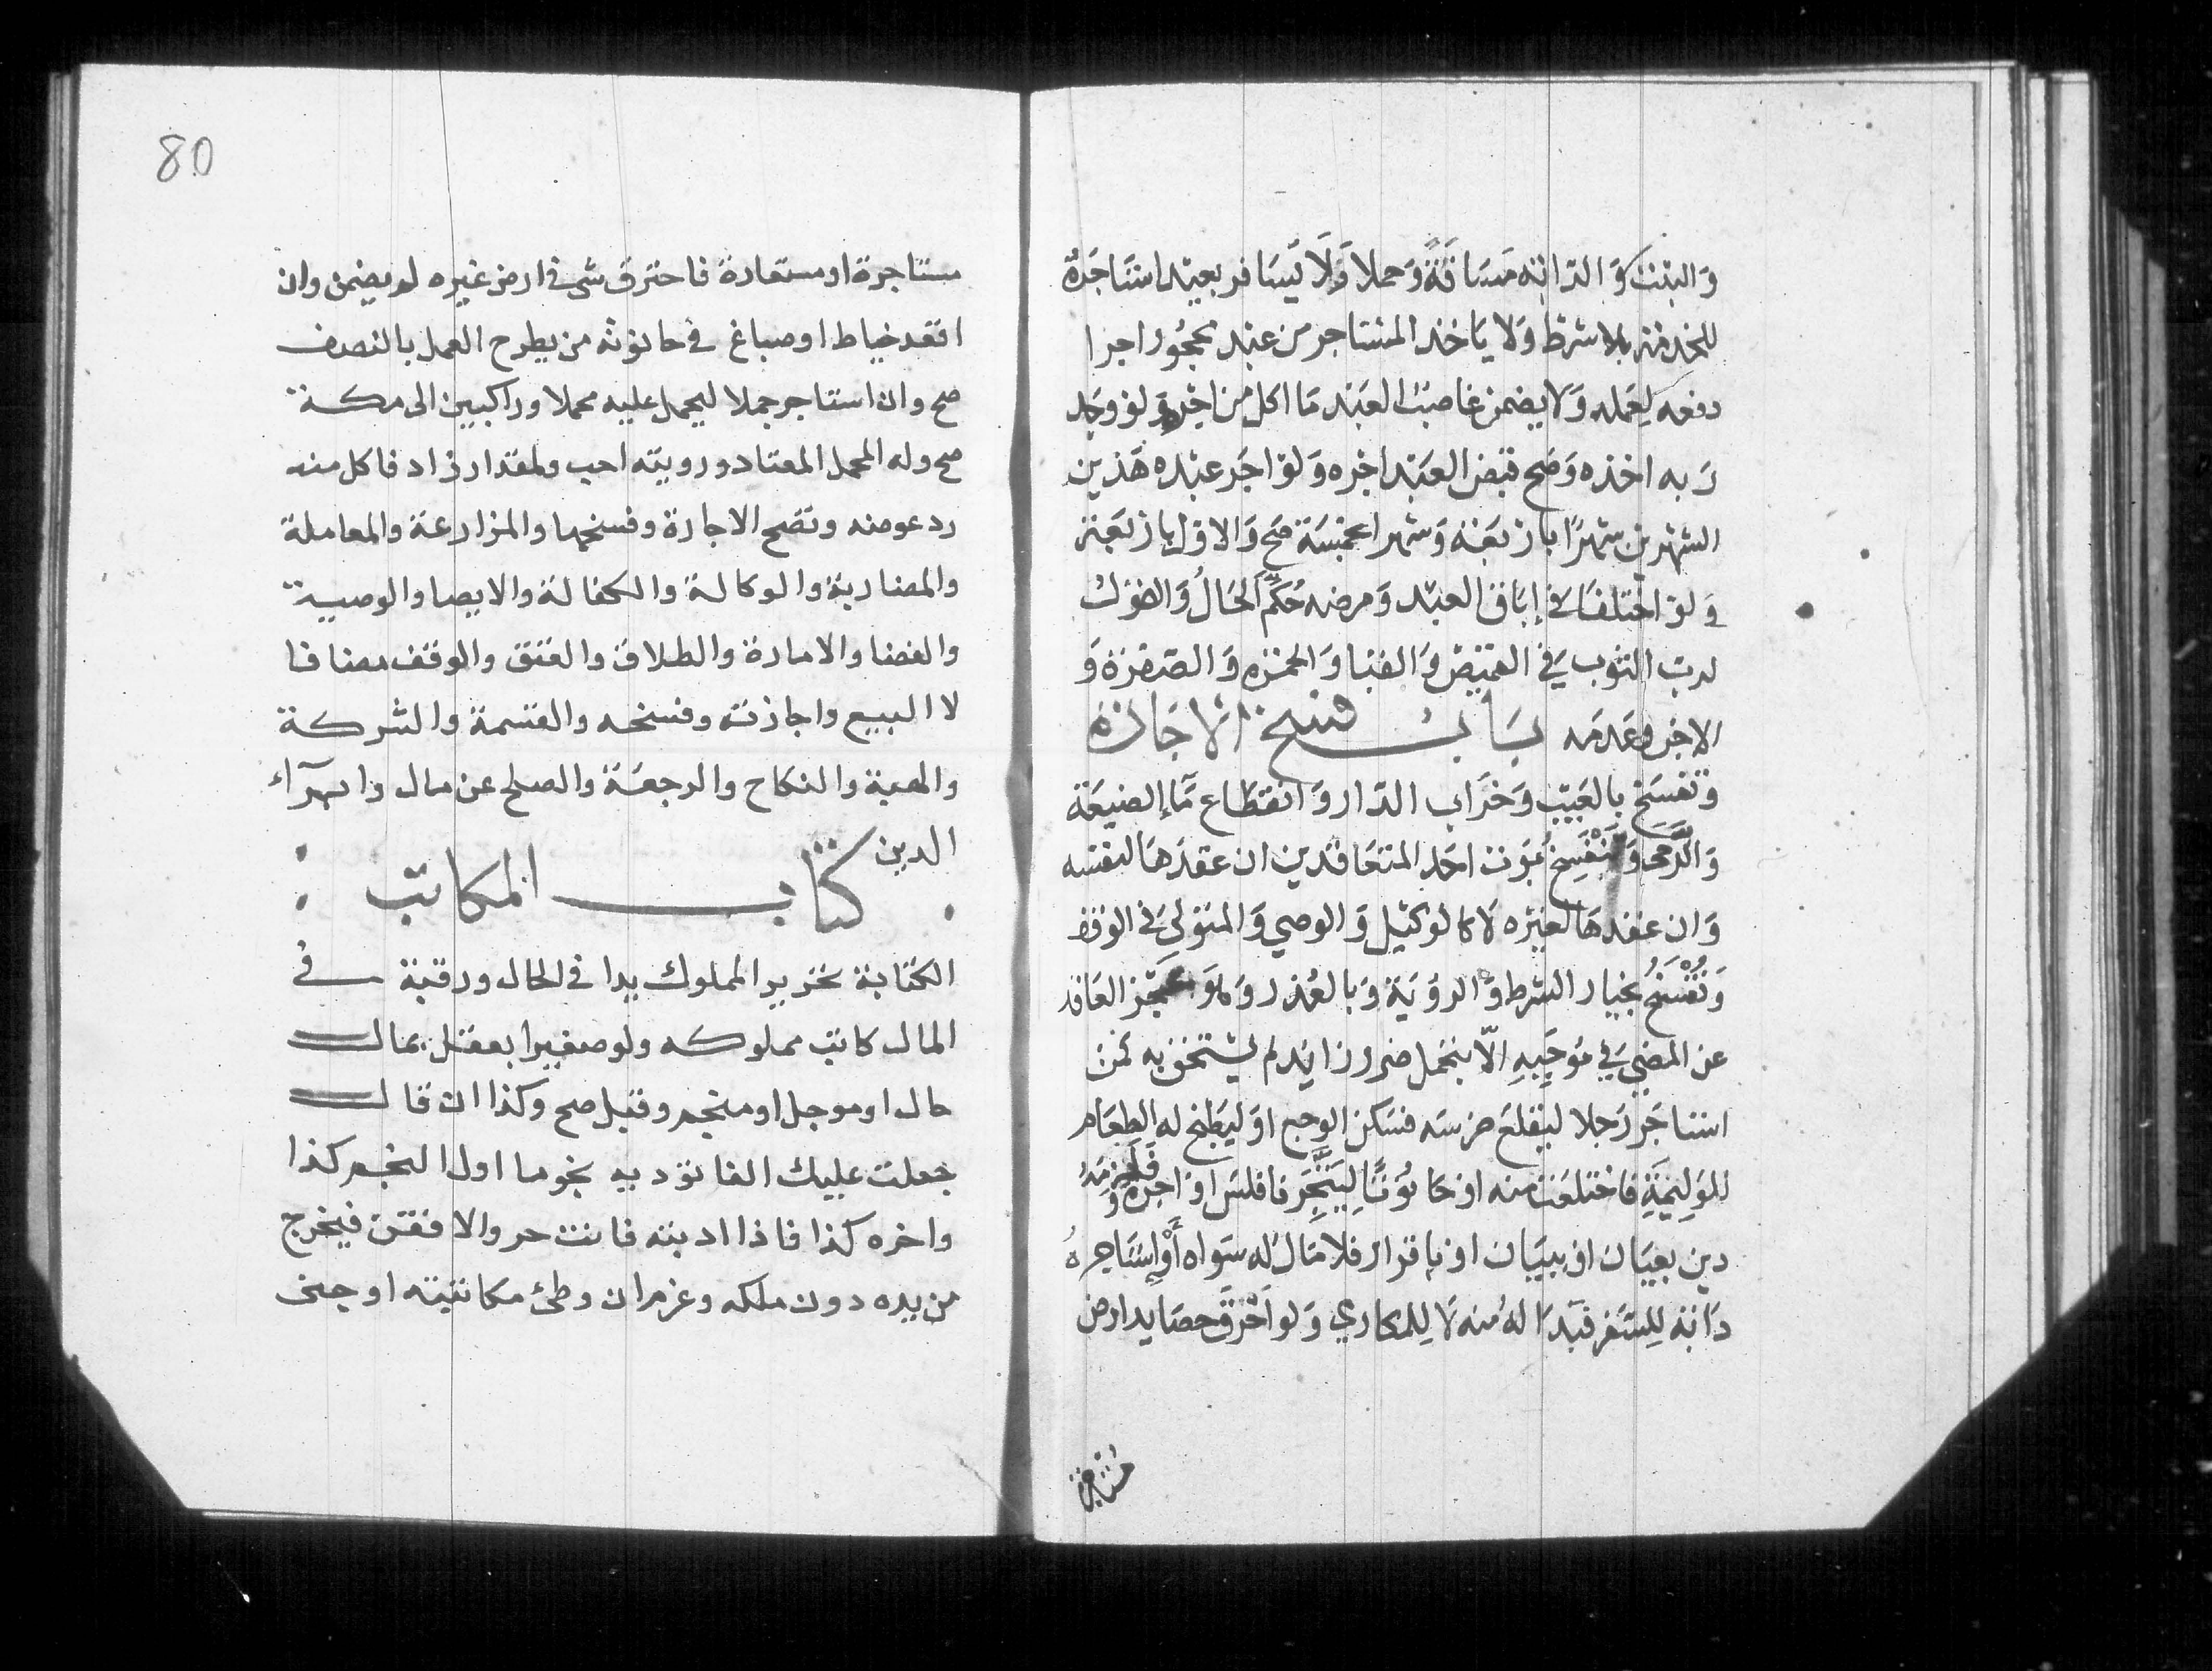 وَالبَيت وَالدَّابَّة مَسَافَةً وَحملا وَلَا يُسَافر بعبد استَاجَرَهُ
للخدمة بلا شرط وَلا يَاخذ المستاجر من عبد محجُور اجرا
دفعه لعَمله وَلا يضمن غاصب العَبد مَا اكل من اجره وَلو وجَد
رَبه اخذه وَصَح قبض العَبد اجره وَلو اجَر عبده هَذين
الشهرين شهرًا باربعَة وَشهرا بخمسَة صَح وَالاول باربَعة
وَلو اختلفَا في إباق العبد وَمرضه حُكِّمَ الحَالُ وَالقول
لرب الثوب في القميص وَالقبا وَالحمرة وَالصفرة وَ
الاجر وعَدمه بَابُ فسخ الاجَارة
وَتفسَخ بالعَيب وَخَرَاب الدّار وَانقطَاع مَاء الضيعَة
وَالرَّحى وَتَنْفَسِخ بمَوت احَد المتعَاقدين ان عقدَهَا لنفسه
وَان عقدهَا لغيره لَا كالوَكيل وَالوصي وَالمتولي في الوقف
وَتُفْسَخُ بخيار الشرط وَالرؤيَة وَبالعُذر وَهوَ عَجز العَاقد
عن المضي في مُوجَبِهِ الّا بتحمل ضرر زائد لم يستحق به كمن
استاجَر رَجلا ليقلعَ ضرسَه فسَكن الوجع اوليَطبخ له الطعَام
للوَلِيمَةِ فاختلعَت منه او حَانوتًا لِيَتَّجِرَ فافلسَ او اجَره وَلَزِمَهُ
دين بعيَان او ببيَان او باقرار فلا مَال له سوَاه أَوِ استَاجره
دَابّة لِلسَّفر فبَدَا لهُ منه لَا لِلمكاري وَلو اَحْرَقَ حصَايد ارض
مستاجرة
80
مستاجرة او مستعارة فاحترق شي في ارض غيره لم يضمن وان
اقعد خياط او صباغ في حانوته من يطرح العمل بالنصف
صح وان استاجر جملا ليحمل عليه محملا وراكبين الى مكة
صح وله المحمل المعتاد ورويته احب ولمقدار زاد فاكل منه
رد عوضه وتصح الاجارة وفسخها والمزارعة والمعاملة
والمضاربة والوكالة والكفالة والايصا والوصية
والقضا والامارة والطلاق والعتق والوقف مضافا
لا البيع واجازته وفسخه والقسمة والشركة
والهبة والنكاح والرجعة والصلح عن مال وابرآء
الدين كتاب المكاتب
الكتابة تحرير المملوك يدا في الحال ورقبة في
المال كاتب مملوكه ولو صغيرا يعقل بمال
حال او موجل او منجم وقبل صح وكذا ان قال
جعلت عليك الفا توديه نجوما اول النجم كذا
واخره كذا فاذا اديته فانت حر والا فقن فيخرج
من يده دون ملكه وغرم ان وطئ مكاتبته او جنى